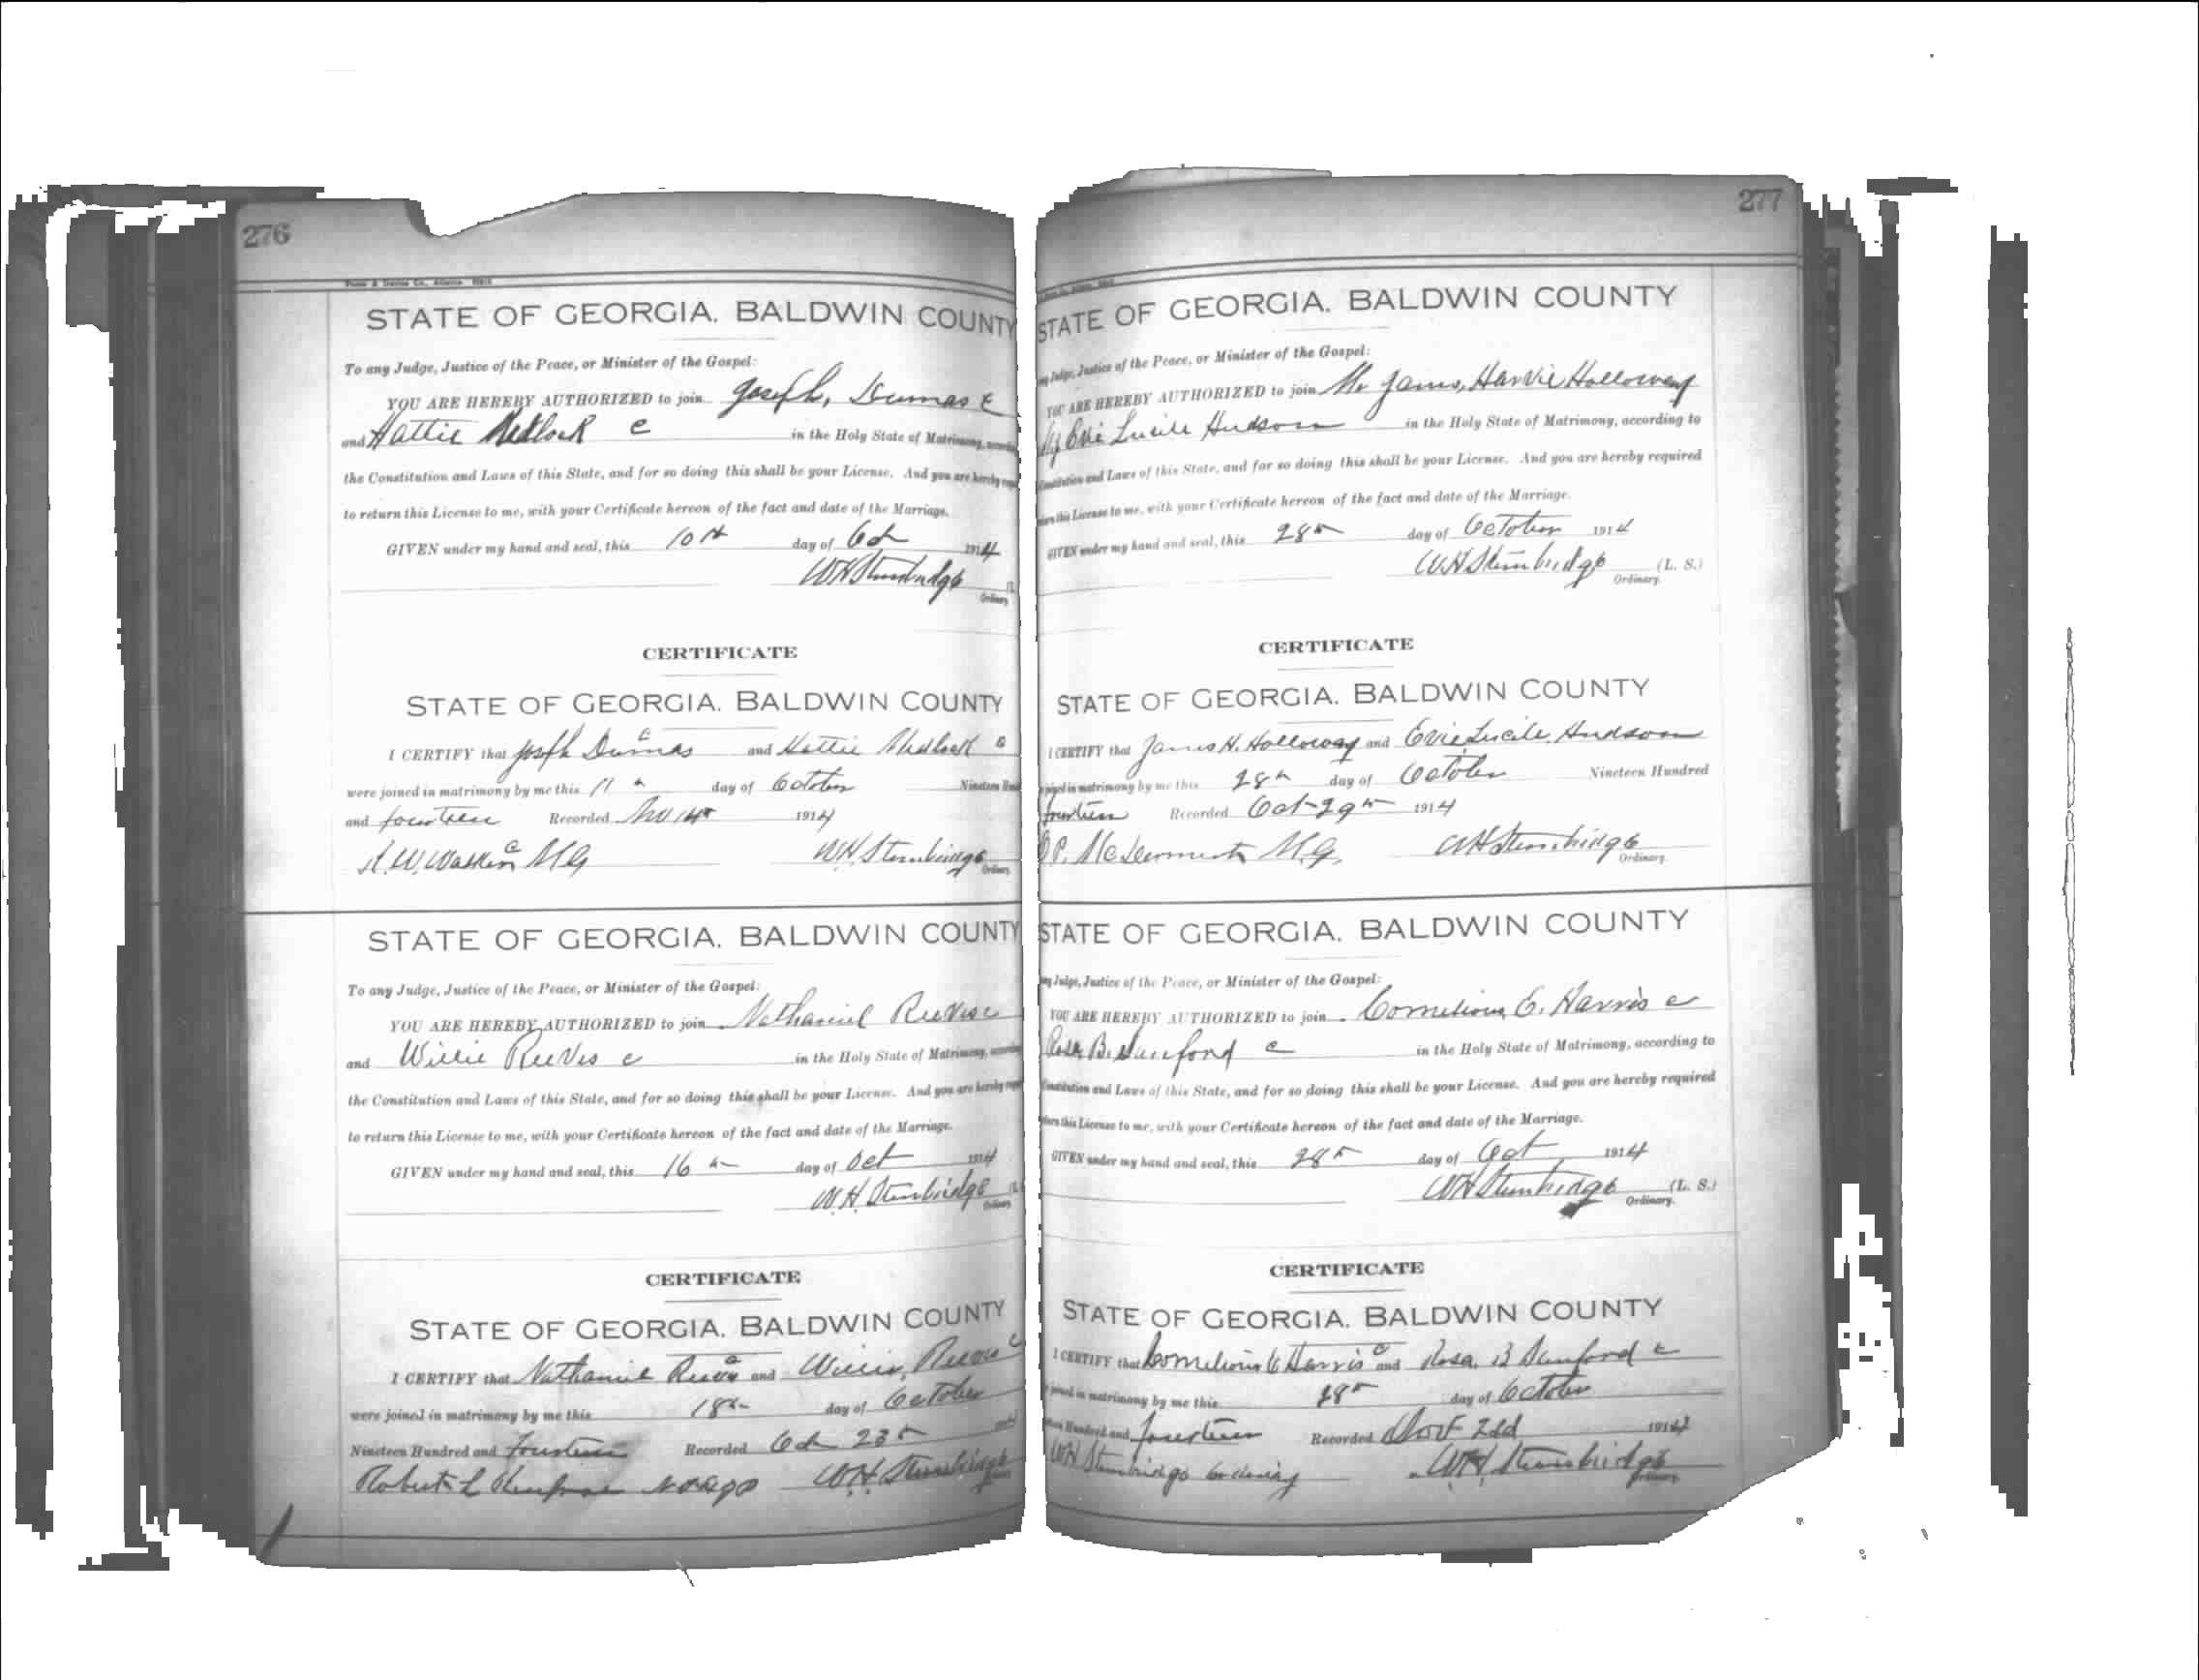 276
STATE OF GEORGIA. BALDWIN COUNTY
To any Judge, Justice of the Peace, or Minister of the Gospel:
YOU ARE HEREBY AUTHORIZED to join Joseph, Dumas c
and Hattie Medlock c in the Holy State of Matrimony,
the Constitution and Laws of this State, and for so doing this shall be your License. And you are hereby
to return this License to me, with your Certificate hereon of the fact and date of the Marriage.
GIVEN under my hand and seal, this 10th day of Oct 1914
WH Stembridge
Ordinary
CERTIFICATE
STATE OF GEORGIA. BALDWIN COUNTY
I CERTIFY that Joseph Dumas c and Hattie Medlock c
were joined in matrimony by me this 11th day of October Nineteen
and fourteen Recorded Nov 14th 1914
W.H. Stembridge
Ordinary
STATE OF GEORGIA. BALDWIN COUNTY
To any Judge, Justice of the Peace, or Minister of the Gospel:
YOU ARE HEREBY AUTHORIZED to join Nathaniel Reeves c
and Willie Reeves c in the Holy State of Matrimony,
the Constitution and Laws of this State, and for so doing this shall be your License. And you are hereby
to return this License to me, with your Certificate hereon of the fact and date of the Marriage.
GIVEN under my hand and seal, this 16th day of Oct 1914
W.H. Stembridge
Ordinary
CERTIFICATE
STATE OF GEORGIA. BALDWIN COUNTY
I CERTIFY that Nathaniel Reeves c and Willie, Reeves c
were joined in matrimony by me this 18th day of October
Nineteen Hundred and fourteen Recorded Oct 23rd
Robert L W.H. Stembridge
277
STATE OF GEORGIA. BALDWIN COUNTY
Judge, Justice of the Peace, or Minister of the Gospel:
YOU ARE HEREBY AUTHORIZED to join Mr James, Harvie Holloway
Evie Lucile Hudson in the Holy State of Matrimony, according to
and Laws of this State, and for so doing this shall be your License. And you are hereby required
this License to me, with your Certificate hereon of the fact and date of the Marriage.
GIVEN under my hand and seal, this 28th day of October 1914
WH Stembridge (L. S.)
Ordinary.
CERTIFICATE
STATE OF GEORGIA. BALDWIN COUNTY
I CERTIFY that James H. Holloway and Evie Lucile Hudson
in matrimony by me this 28th day of October Nineteen Hundred
fourteen Recorded Oct 29th 1914
McDermott M.G. WH Stembridge
Ordinary.
STATE OF GEORGIA. BALDWIN COUNTY
Judge, Justice of the Peace, or Minister of the Gospel:
YOU ARE HEREBY AUTHORIZED to join Cornelious E. Harris c
Rosa B. Sanford c in the Holy State of Matrimony, according to
and Laws of this State, and for so doing this shall be your License. And you are hereby required
this License to me, with your Certificate hereon of the fact and date of the Marriage.
GIVEN under my hand and seal, this 28th day of Oct 1914
WH Stembridge (L. S.)
Ordinary.
CERTIFICATE
STATE OF GEORGIA. BALDWIN COUNTY
I CERTIFY that Cornelious E Harris c and Rosa. B Sanford c
joined in matrimony by me this 28th day of October
Hundred and fourteen Recorded Nov 2nd 1914
WH Stembridge Ordinary W.H. Stembridge
Ordinary.